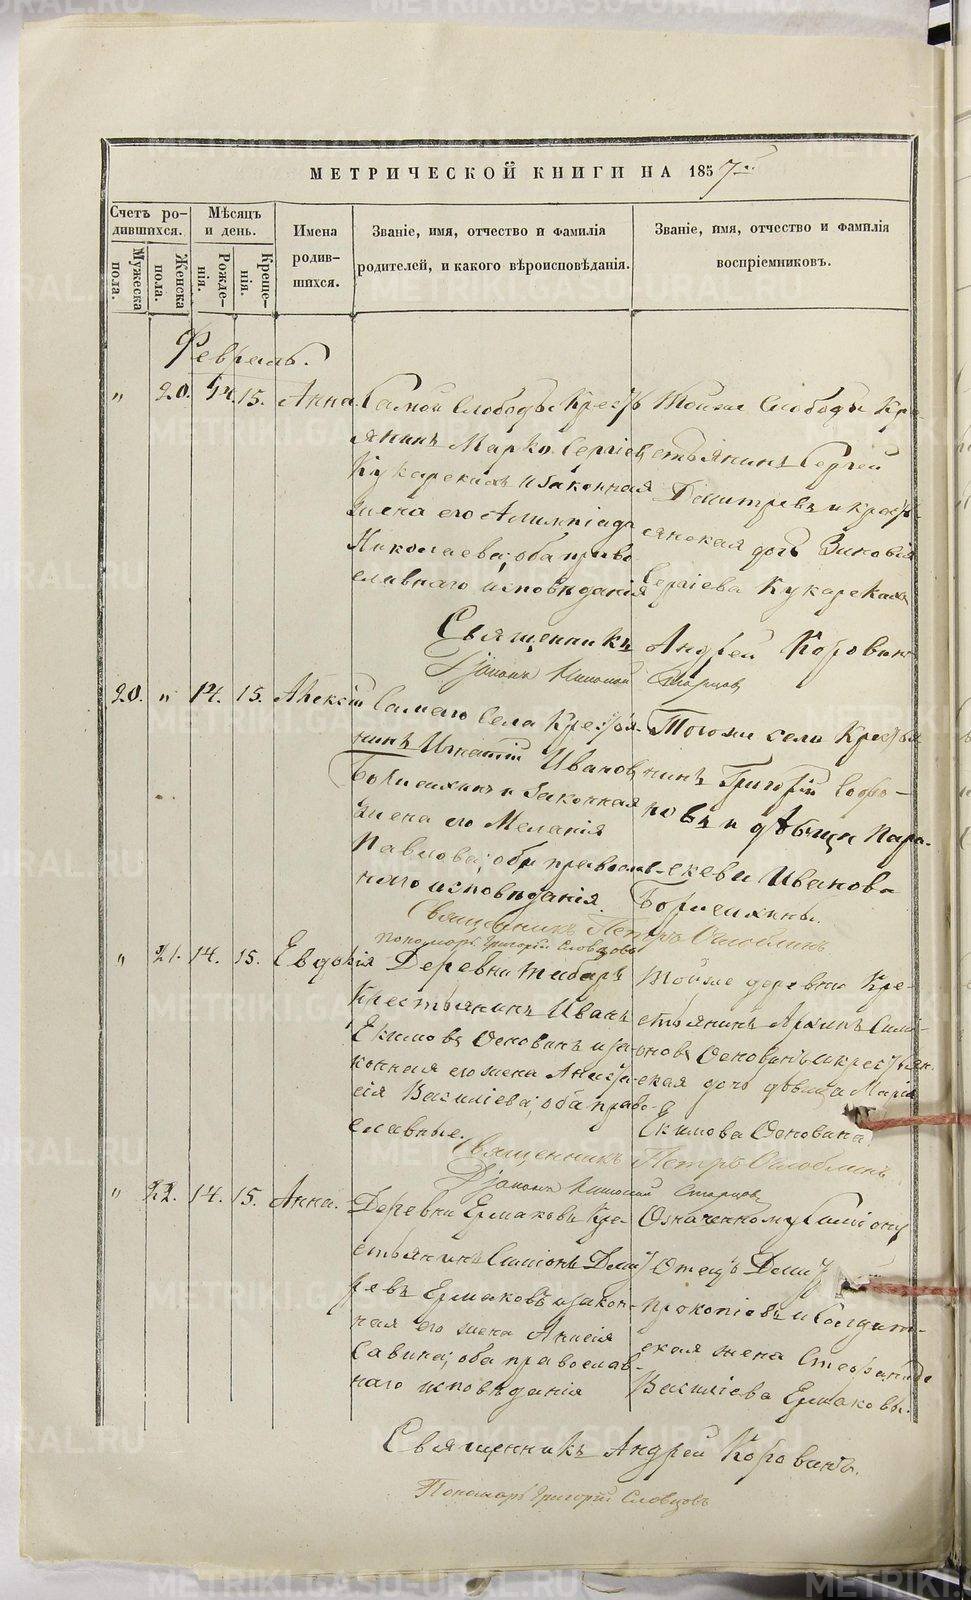 МЕТРИЧЕСКОЙ КНИГИ НА 1857
Счетъ ро-
дившихся.
Мужеска пола.
Женска пола.
Мѣсяцъ и день.
Рожде-
нія.
Креще-
нія.
Имена
родив-
шихся.
Званіе, имя, отчество и фамилія
родителей, и какого вѣроисповѣданія.
Званіе, имя, отчество и фамилія
воспріемниковъ.
Февраль.
" 20. 14. 15. Анна.
Самой Слободы Кресть
янинъ Марко Сергіевъ
Кукарскихъ и законная
жена его Алимпіада
Николаева; оба право
славнаго исповѣданія
Тойже Слободы Кре-
стьянинъ Сергей
Дмитревъ и кресть-
янская дочь Зиновія
Сергіева Кукарская
Священникъ Андрей Коровинъ
Дьяконъ Николай Старцовъ
20. " 14. 15. Алексій
Самаго Села Крестья-
нинъ Игнатій Ивановъ
и законная
жена его Меланія
Павлова; оба православ-
наго исповѣданія.
Тогоже села Крестья
нинъ Григорій Софро-
новъ и дѣвица Пара-
скева Иванова
Священникъ Петръ Оглоблинъ
Пономарь Григорій Словцовъ
" 21. 14. 15. Евдокія
Деревни
Крестьянинъ Иванъ
Екимовъ Основинъ и за-
конная его жена Анаста-
сія Василіева; оба право-
славные.
Тойже деревни Кре-
стьянинъ Архипъ Симі-
оновъ Основинъ и крестьян-
ская дочь дѣвица Марія
Екимова Основина.
Священникъ Петръ Оглоблинъ
Дьяконъ Николай Старцовъ
" 22. 14. 15. Анна.
Деревни Ермаковы Кре-
стьянинъ Симіонъ Димит
ревъ Ермаковъ и закон-
ная его жена Анисія
Савина; оба православ-
наго исповѣданія
Означенному Симіону
Отецъ Димит
Прокопіевъ и Солдат-
ская жена Стефанида
Василіева Ермаковы.
Священникъ Андрей Коровинъ.
Пономарь Григорій Словцовъ